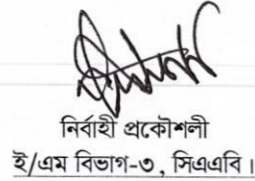 নির্বাহী প্রকৌশলী
ই/এম বিভাগ-৩, সিএএবি।